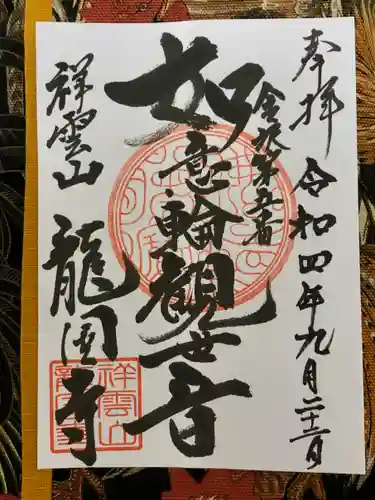 奉拝 令和四年九月二十二日
金沢第五番
如意輪観世音
祥雲山
龍国寺